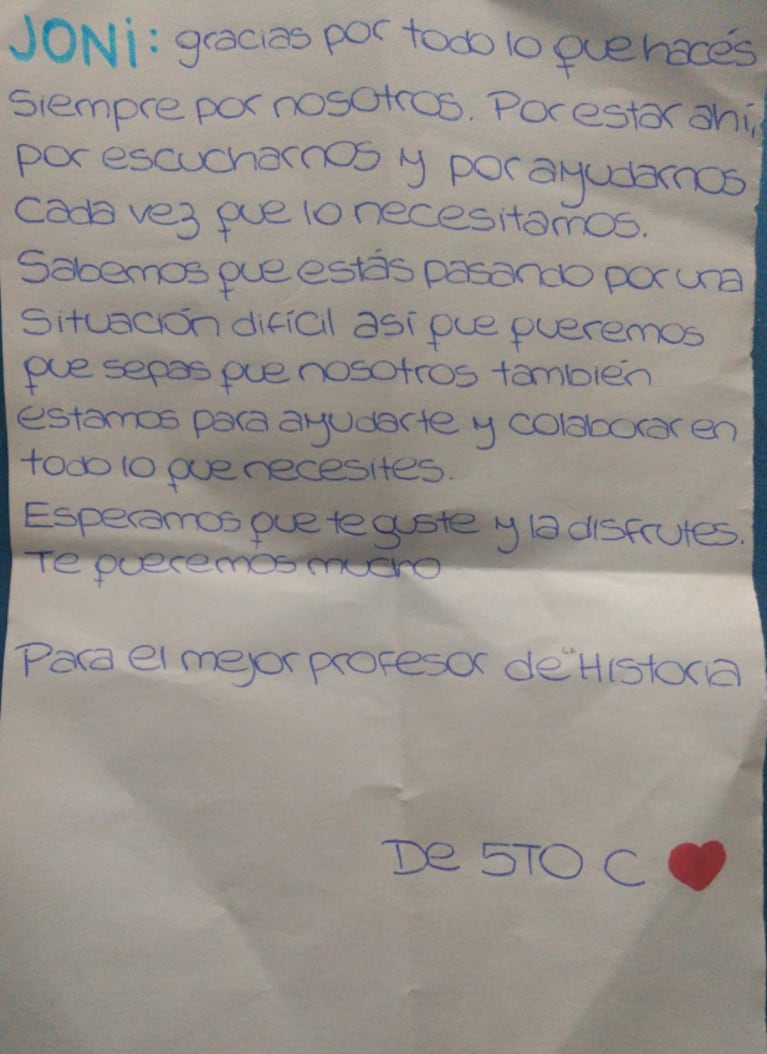 JONi: gracias por todo lo que hacés
siempre por nosotros. Por estar ahí,
por escucharnos y por ayudarnos
cada vez que lo necesitamos.
Sabemos que estás pasando por una
situación difícil así que queremos
que sepas que nosotros también
estamos para ayudarte y colaborar en
todo lo que necesites.
Esperamos que te guste y la disfrutes.
Te queremos mucho
Para el mejor profesor de "LA" Historia
De 5TO C ❤